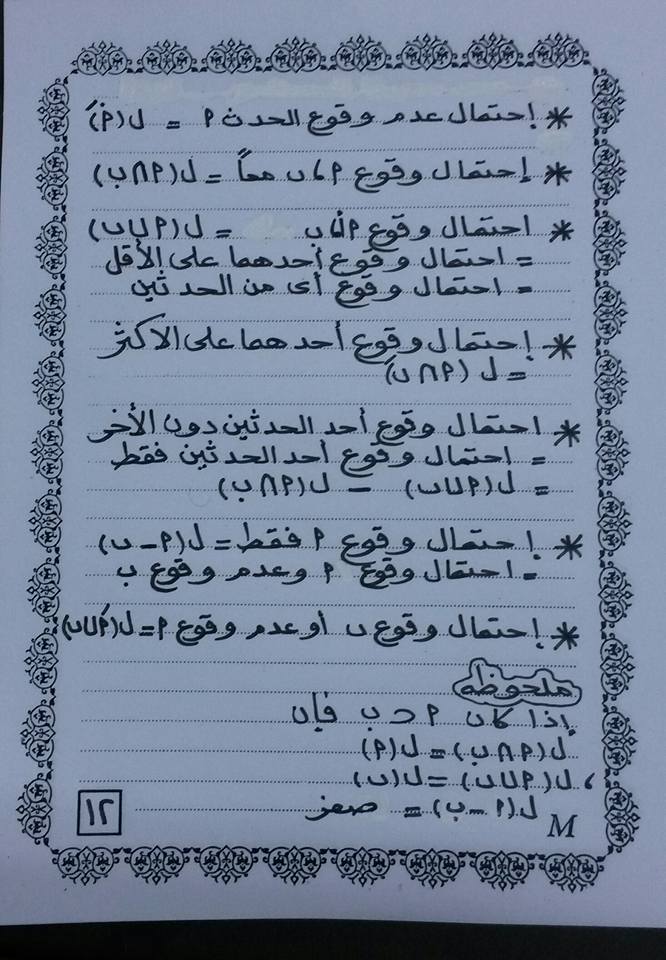 * إحتمال عدم وقوع الحدث ٩ = ل(٩َ)
* إحتمال وقوع ٩ ، ب معاً = ل(٩∩ب)
* احتمال وقوع ٩ أ، ب = ل(٩∪ب)
= احتمال وقوع أحدهما على الأقل
= احتمال وقوع أى من الحدثين
* إحتمال وقوع أحدهما على الاكثر
= ل(٩∩ب)َ
* احتمال وقوع أحد الحدثين دون الأخر
= احتمال وقوع أحد الحدثين فقط
= ل(٩∪ب) − ل(٩∩ب)
* إحتمال وقوع ٩ فقط = ل(٩−ب)
= احتمال وقوع ٩ وعدم وقوع ب
* إحتمال وقوع ب أو عدم وقوع ٩ = ل(٩َ∪ب)
ملحوظه
إذا كان ٩ ⊂ ب فإن
ل(٩∩ب) = ل(٩)
، ل(٩∪ب) = ل(ب)
ل(٩−ب) = صفر
M
١٢